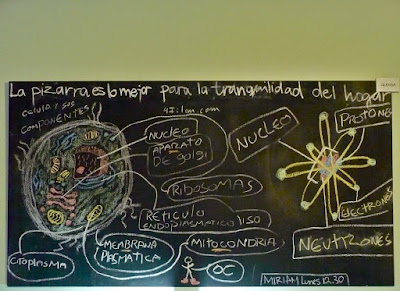 La pizarra es lo mejor para la tranquilidad del hogar
CELULA Y SUS
COMPONENTES
NUCLEO
APARATO
DE GOLGI
RIBOSOMAS
RETICULO
ENDOPLASMATICO LISO
CITOPLASMA
MEMBRANA
PLASMATICA
MITOCONDRIA
OC
NUCLEO
PROTONES
ELECTRONES
NEUTRONES
MIRIAM lunes 12.30